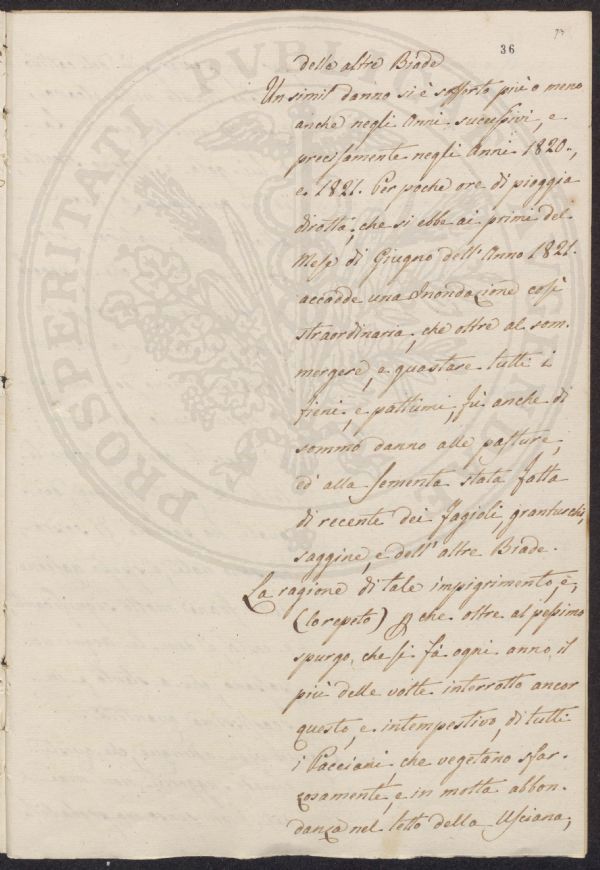 36
delle altre Biade
Un simil danno si è sofferto più o meno
anche negli Anni successivi, e
precisamente negli Anni 1820.,
e 1821. Per poche ore di pioggia
dirotta, che si ebbe ai primi del
Mese di Giugno dell'Anno 1821.
accadde una Inondazione così
straordinaria, che oltre al som-
mergere, e guastare tutti i
fieni, e pattumi, fù anche di
sommo danno alle pasture,
ed alla sementa stata fatta
di recente dei fagioli, granturchi,
saggine, e dell'altre Biade.
La ragione di tale impigrimento, è,
(lo repeto) che oltre al pessimo
spurgo, che si fà ogni anno, il
più delle volte interrotto ancor
questo, e intempestivo, di tutti
i Pacciami, che vegetano sfar-
zosamente, e in molta abbon-
danza nel letto della Usciana,
PROSPERITATI PVBLICAE